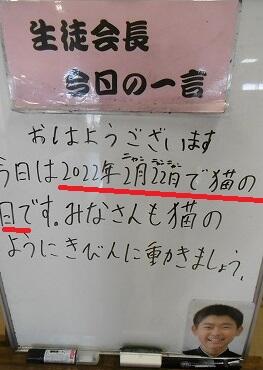 生徒会長
今日の一言
おはようございます
今日は2022年2月22日で猫の
ニャン ニャンニャン
日です。みなさんも猫の
ようにきびんに動きましょう。